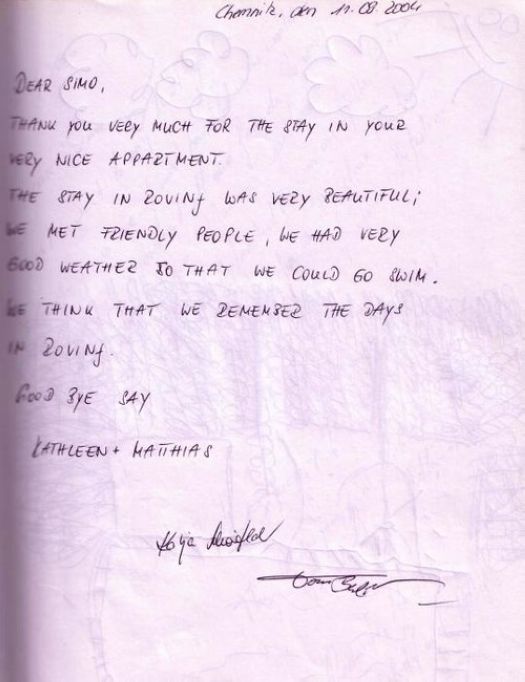 Chemnitz, den 11.08.2004
DEAR SIMO,
THANK YOU VERY MUCH FOR THE STAY IN YOUR
VERY NICE APPARTMENT.
THE STAY IN ROVINJ WAS VERY BEAUTIFUL;
WE MET FRIENDLY PEOPLE, WE HAD VERY
GOOD WEATHER SO THAT WE COULD GO SWIM.
WE THINK THAT WE REMEMBER THE DAYS
IN ROVINJ.
GOOD BYE SAY
KATHLEEN + MATTHIAS